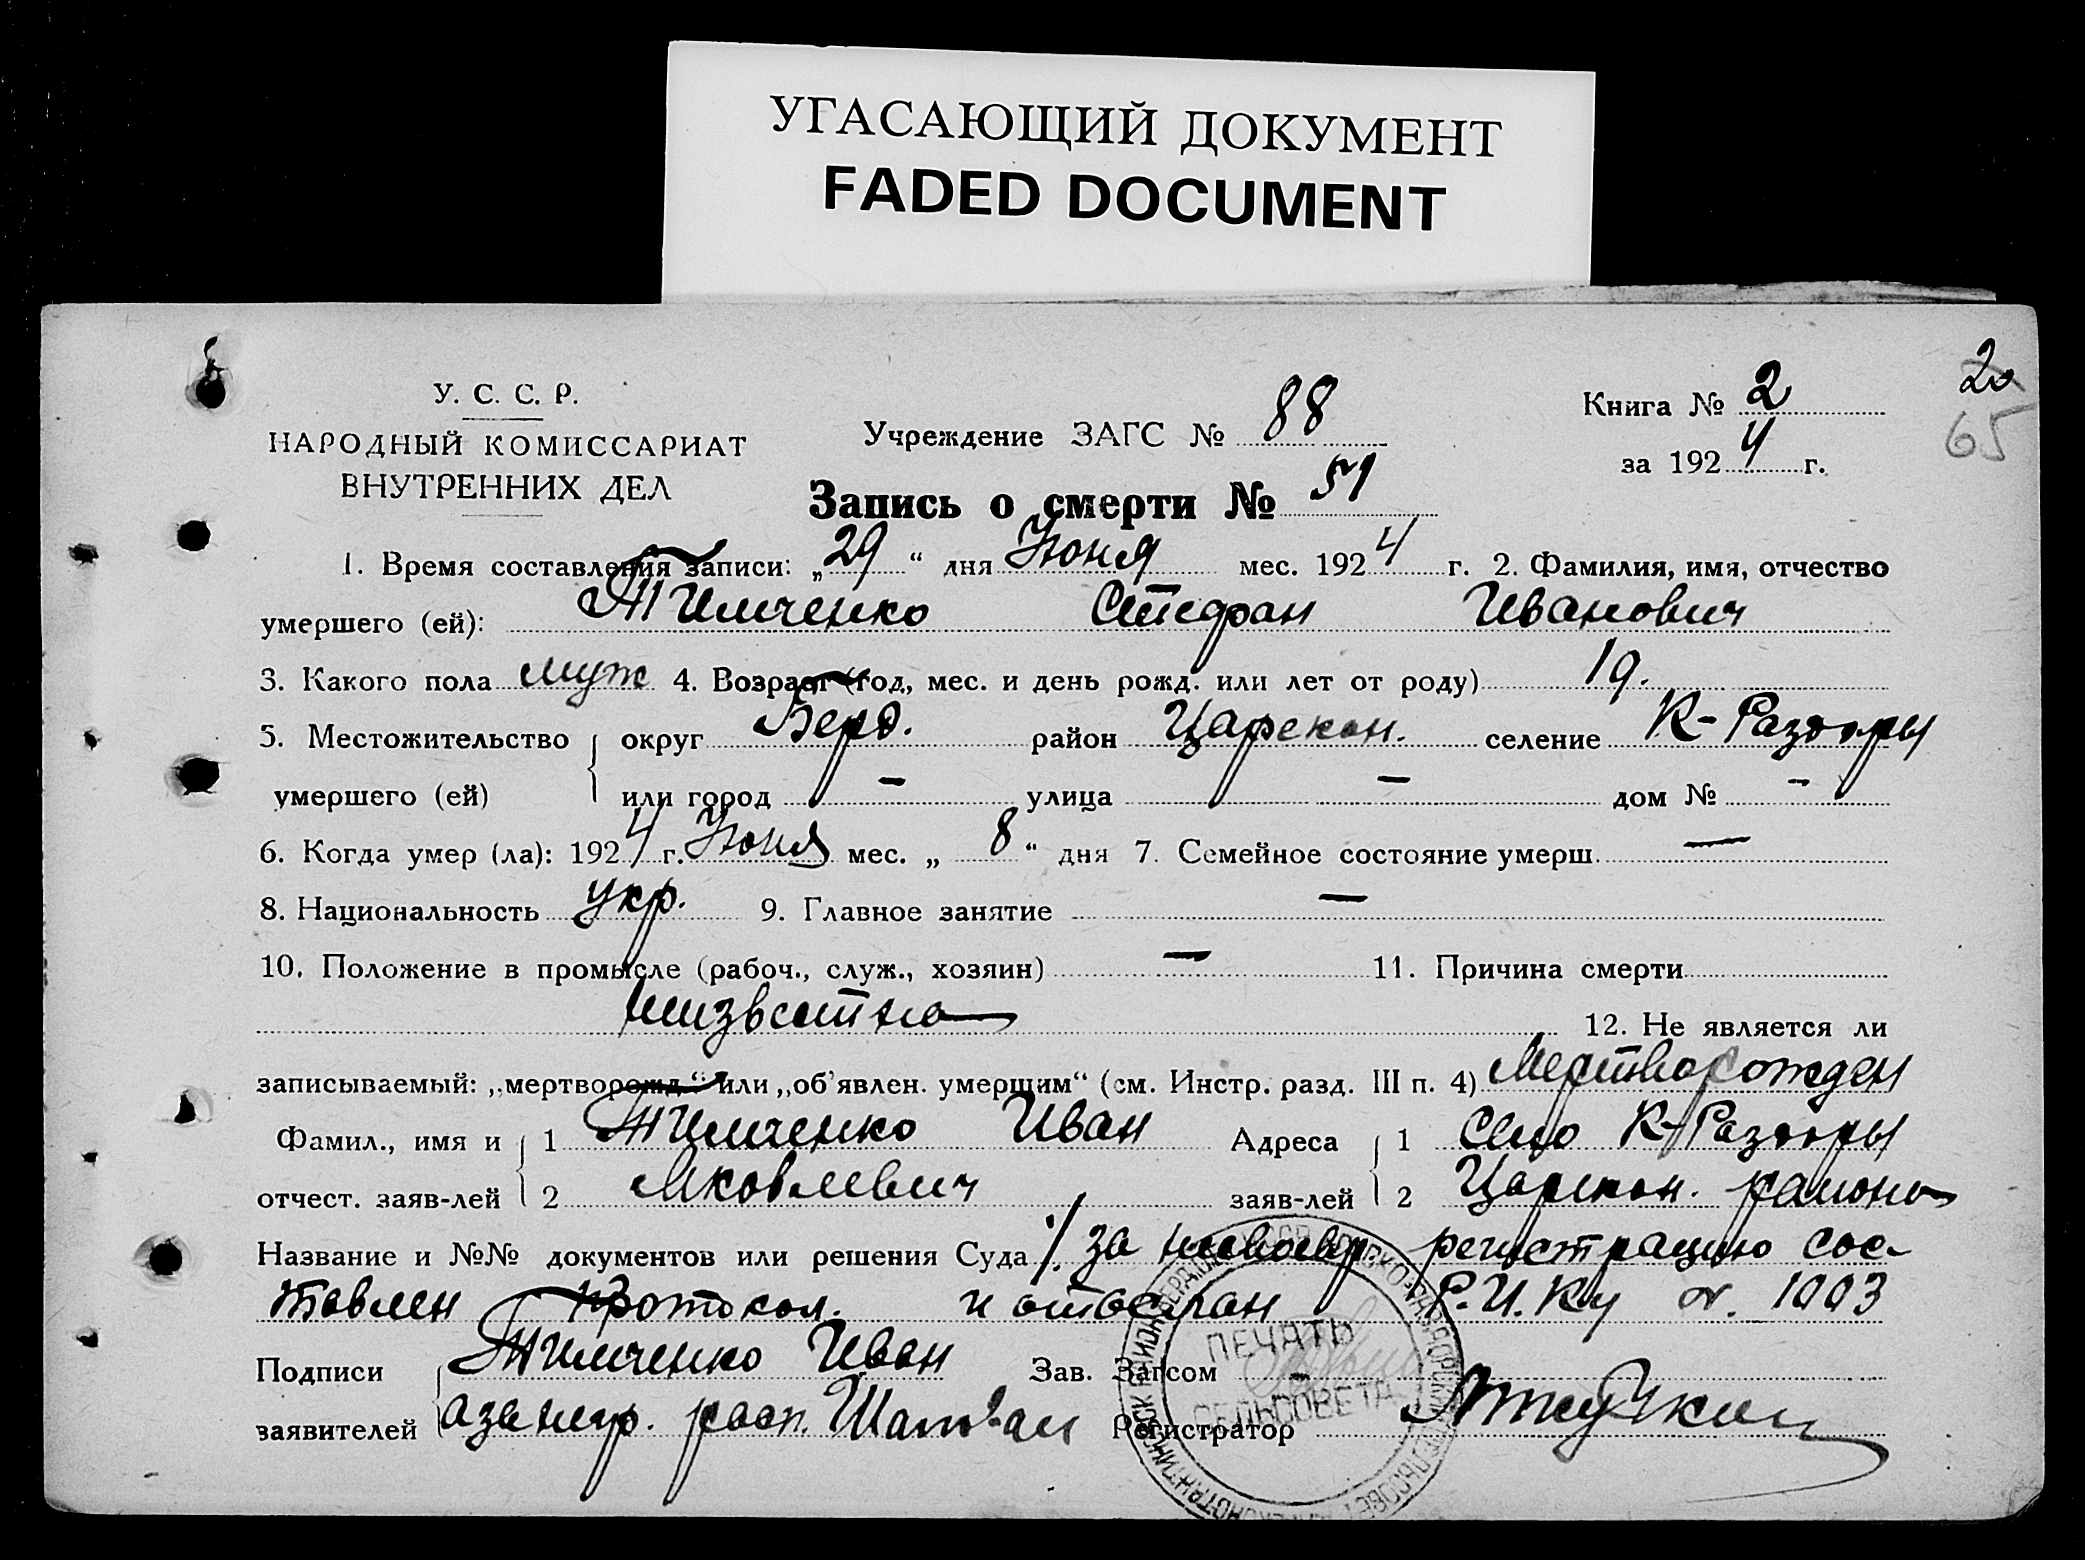 УГАСАЮЩИЙ ДОКУМЕНТ
FADED DOCUMENT
У. С. С. Р.
НАРОДНЫЙ КОМИССАРИАТ
ВНУТРЕННИХ ДЕЛ
Учреждение ЗАГС № 88
Книга № 2
20
65
за 1924 г.
Запись о смерти № 51
1. Время составления записи: „29“ дня Июня мес. 1924 г. 2. Фамилия, имя, отчество
умершего (ей): Тимченко Стефан Иванович
3. Какого пола муж 4. Возраст (год, мес. и день рожд. или лет от роду) 19.
5. Местожительство округ Берд. район Царекон. селение К-Раздоры
умершего (ей) или город — улица — дом № -
6. Когда умер (ла): 1924 г. Июня мес. „8“ дня 7. Семейное состояние умерш. —
8. Национальность укр. 9. Главное занятие —
10. Положение в промысле (рабоч., служ., хозяин) — 11. Причина смерти
неизвестна 12. Не является ли
записываемый: „мертворожд.“ или „об'явлен. умершим“ (см. Инстр. разд. III п. 4) Мертворожден
Фамил., имя и 1 Тимченко Иван Адреса 1 Село К-Раздоры
отчест. заяв-лей 2 Яковлевич заяв-лей 2 Царекон. района
Название и №№ документов или решения Суда за несвоевр регистрацию сос-
тавлен протокол. и отослан Р.И.Ку
Подписи Тимченко Иван Зав. Загсом -
заявителей а за негр. расп. Регистратор
ПЕЧАТЬ
СЕЛЬСОВЕТА